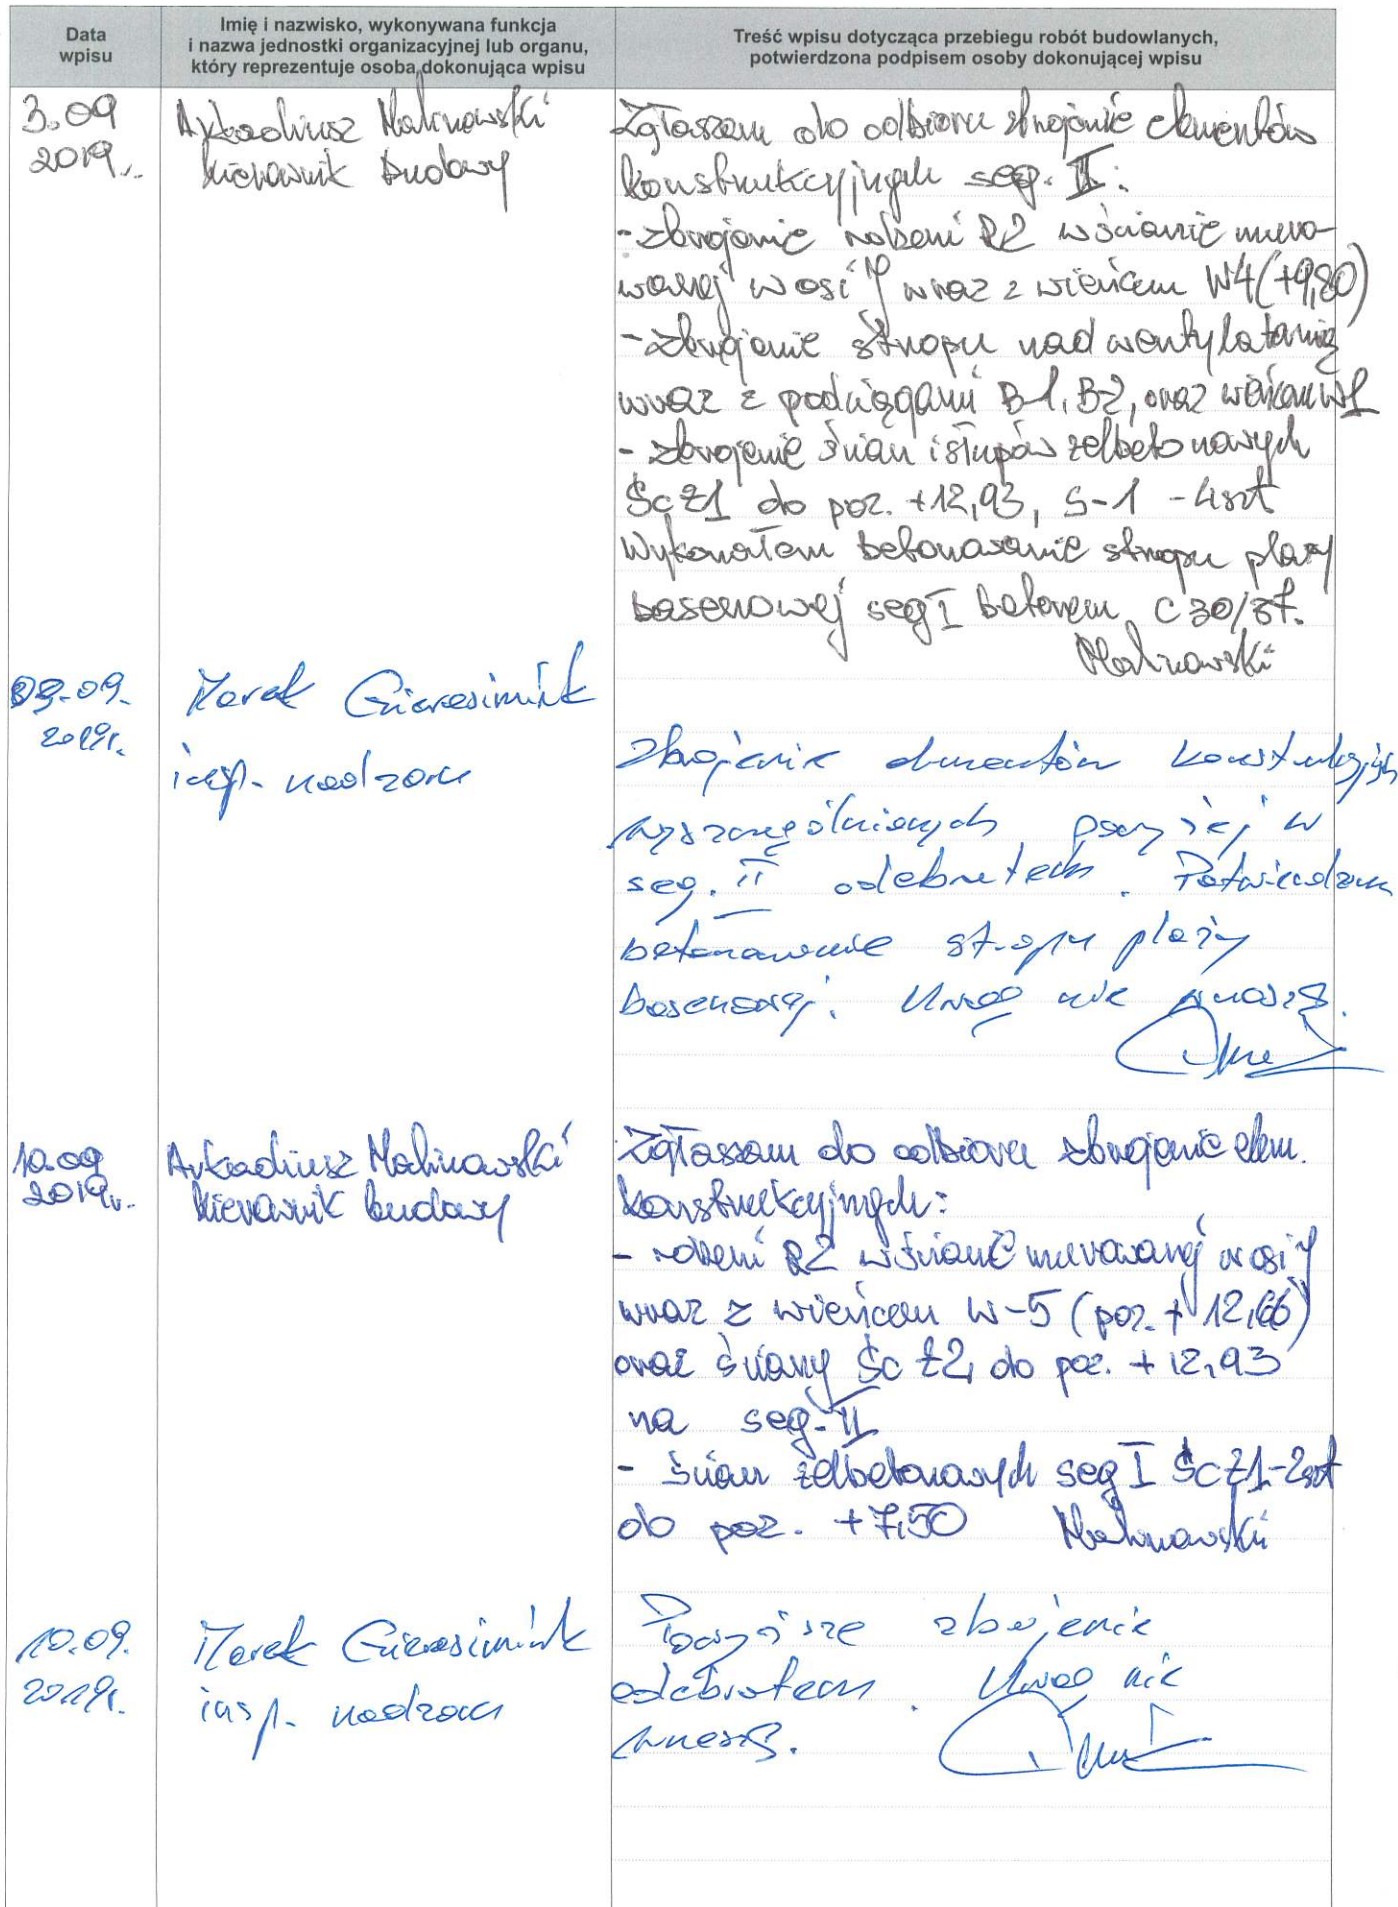 Data
wpisu
Imię i nazwisko, wykonywana funkcja
i nazwa jednostki organizacyjnej lub organu,
który reprezentuje osoba dokonująca wpisu
Treść wpisu dotycząca przebiegu robót budowlanych,
potwierdzona podpisem osoby dokonującej wpisu
3.09
2019r.
Arkadiusz Malinowski
kierownik budowy
Zgłaszam do odbioru zbrojenie elementów
konstrukcyjnych seg. II:
- zbrojenie rdzeni R2 w ścianie muro-
wanej w osi Y wraz z wieńcem W4 (+9,80)
- zbrojenie stropu nad wentylatornią
wraz z podciągami B-1, B-2, oraz wieńcem W1
- zbrojenie ścian i słupów żelbetonowych
ŚcŻ1 do poz. +12,93, S-1 - 4szt
Wykonałem betonowanie stropu plaży
basenowej seg I betonem C30/37.
Malinowski
03.09.
2019r.
Marek
insp. nadzoru
Zbrojenie elementów konstrukcyjnych
wyszczególnionych powyżej w
seg. II odebrałem. Potwierdzam
betonowanie stropu plaży
basenowej. Uwag nie wnoszę.
10.09
2019r.
Arkadiusz Malinowski
kierownik budowy
Zgłaszam do odbioru zbrojenie elem.
konstrukcyjnych:
- rdzeni R2 w ścianie murowanej w osi Y
wraz z wieńcem W-5 (poz. + 12,66)
oraz ściany Śc Ż2, do poz. + 12,93
na seg. II
- ścian żelbetonowych seg I ŚcŻ1-2szt
do poz. +7,50 Malinowski
10.09.
2019r.
Marek
insp. nadzoru
Powyższe zbrojenie
odebrałem. Uwag nie
wnoszę.